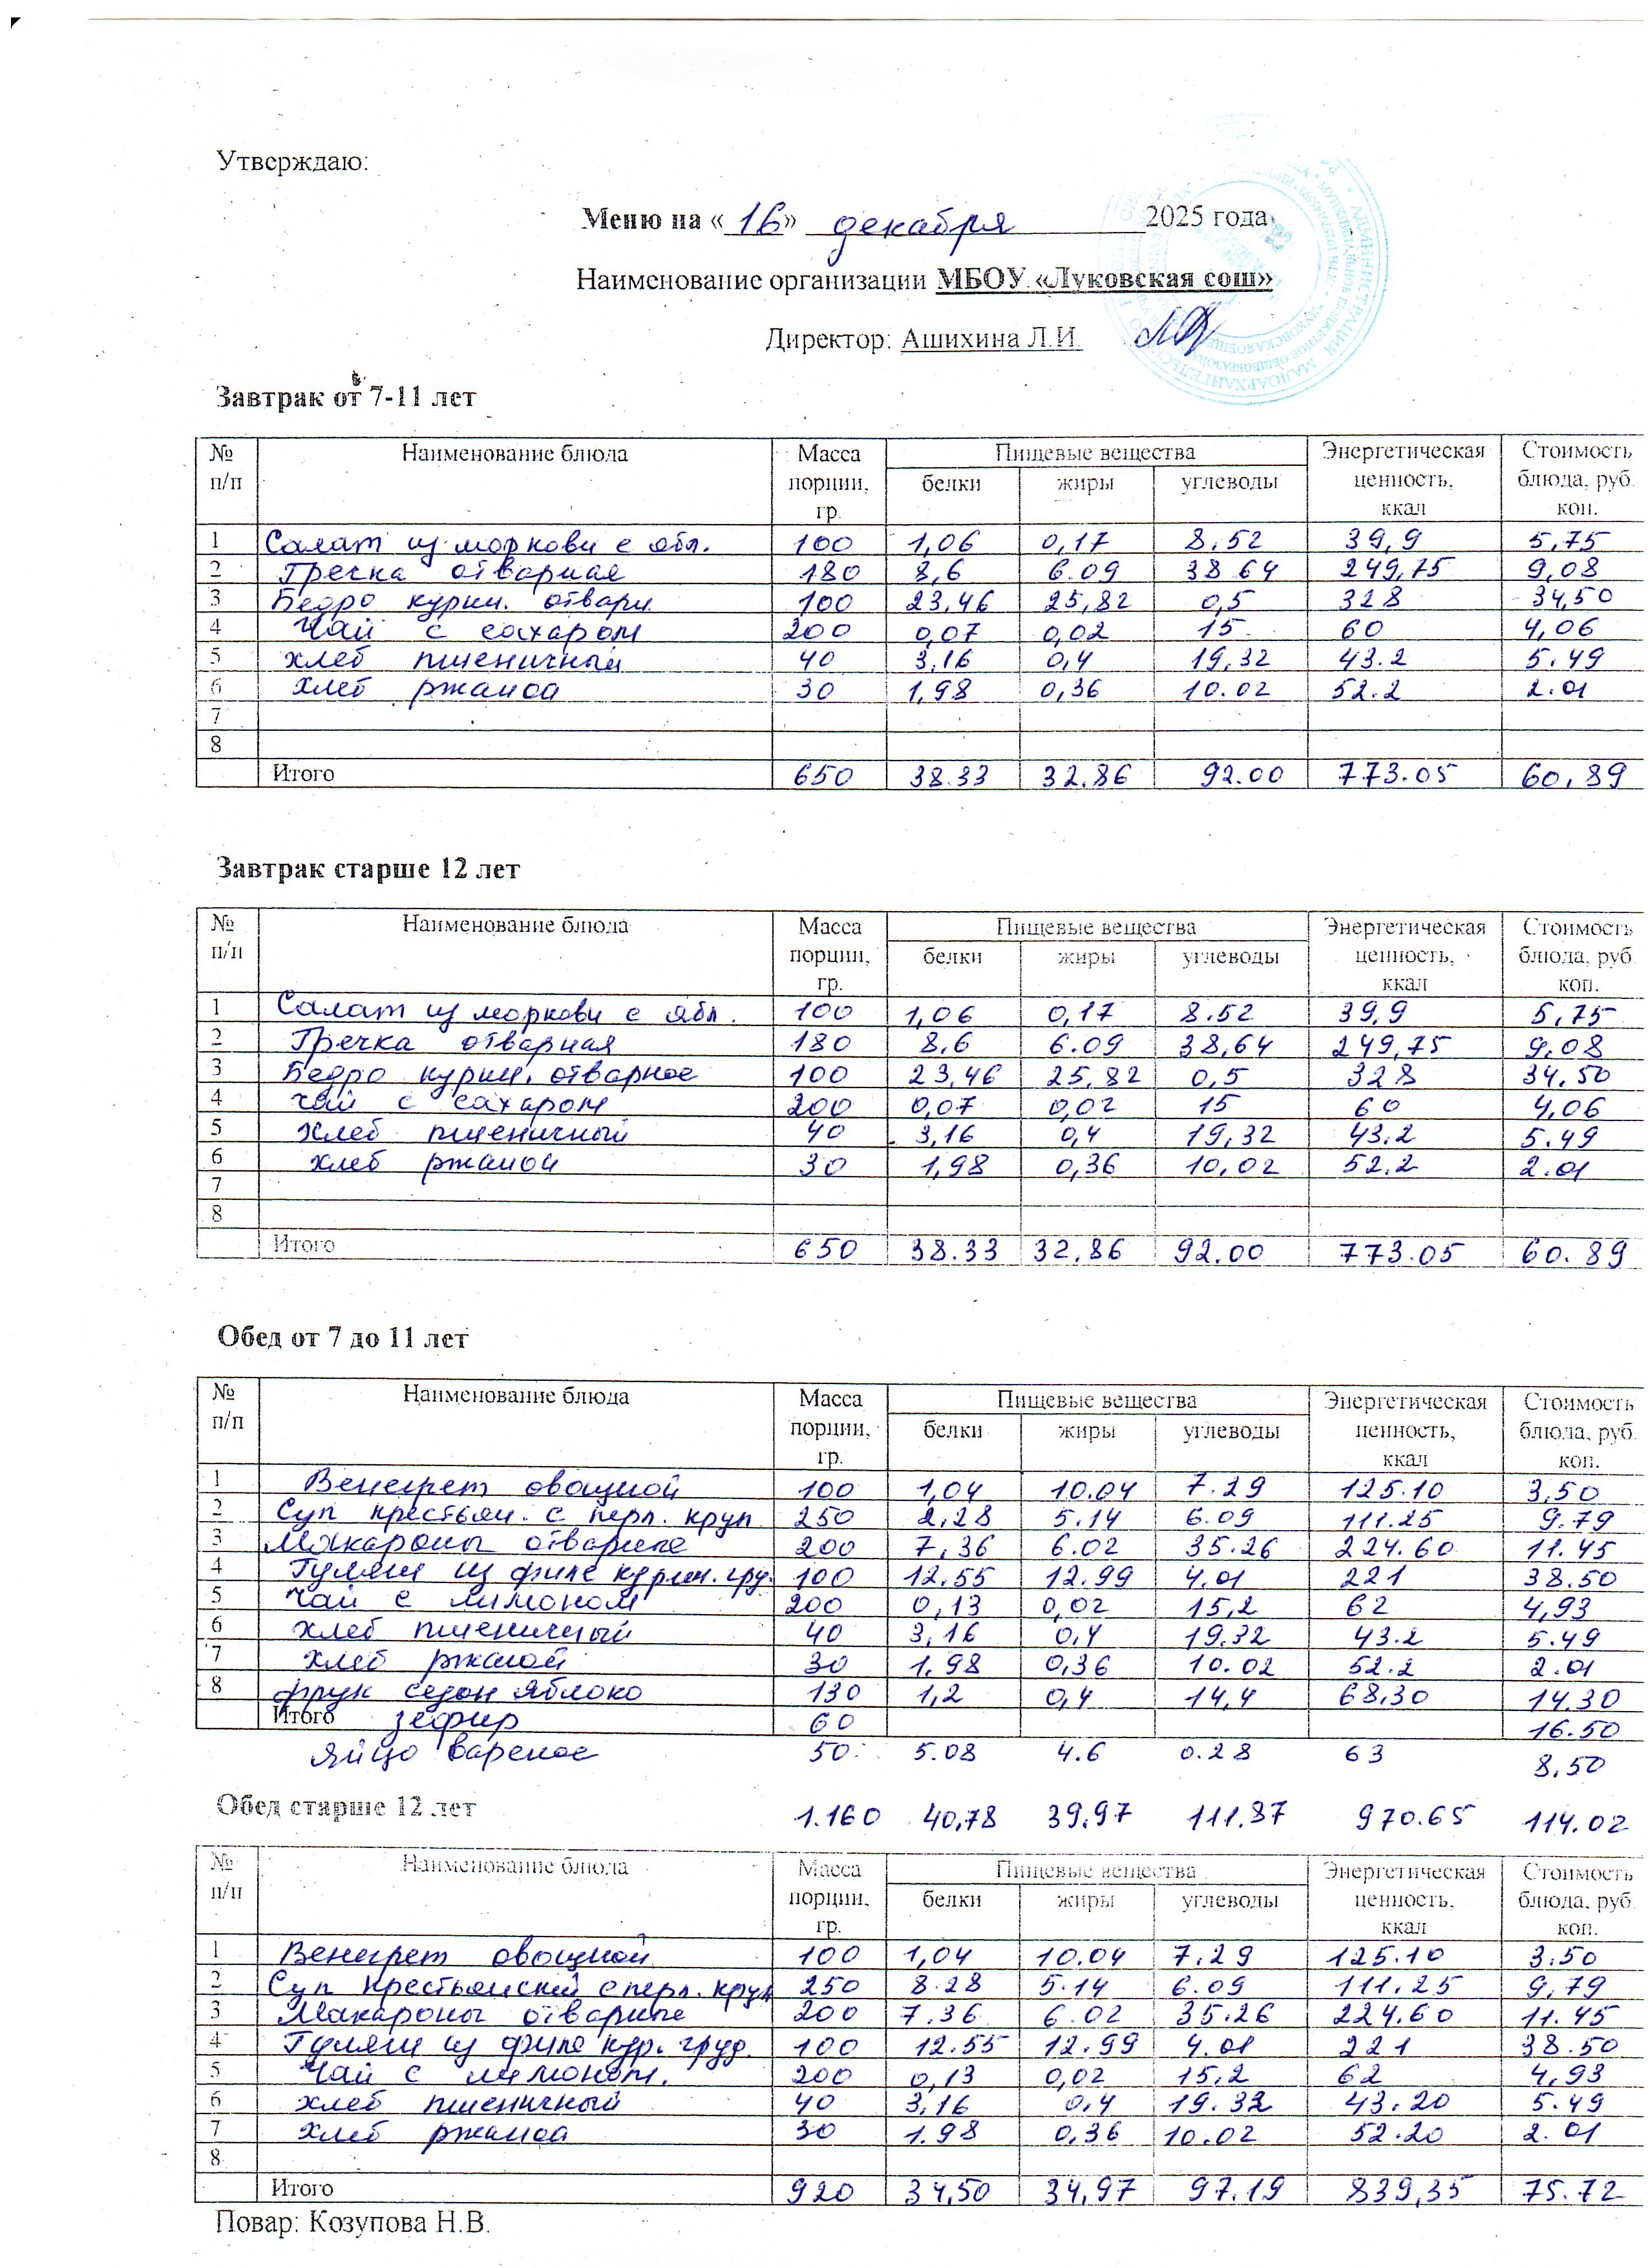 Утверждаю:
Меню на « 16 » декабря 2025 года
Наименование организации МБОУ «Луковская сош»
Директор: Ашихина Л.И.
Завтрак от 7-11 лет
№ п/п Наименование блюда Масса порции, гр. Пищевые вещества Энергетическая ценность, ккал Стоимость блюда, руб. коп.
белки жиры углеводы
1 Салат из моркови с ябл. 100 1,06 0,17 8.52 39,9 5,75
2 Гречка отварная 180 8,6 6.09 38 64 249,75 9,08
3 Бедро курин. отварн 100 23,46 25,82 0,5 328 34,50
4 Чай с сахаром 200 0,07 0,02 15 60 4,06
5 хлеб пшеничный 40 3,16 0,4 19,32 43.2 5.49
6 хлеб ржаной 30 1,98 0,36 10.02 52.2 2.01
7
8
Итого 650 38.33 32,86 92.00 773.05 60,89
Завтрак старше 12 лет
№ п/п Наименование блюда Масса порции, гр. Пищевые вещества Энергетическая ценность, ккал Стоимость блюда, руб. коп.
белки жиры углеводы
1 Салат из моркови с ябл. 100 1,06 0,17 8.52 39,9 5,75
2 Гречка отварная 180 8,6 6.09 38,64 249,75 9,08
3 Бедро курин. отварное 100 23,46 25,82 0,5 328 34,50
4 Чай с сахаром 200 0,07 0,02 15 60 4,06
5 Хлеб пшеничный 40 3,16 0,4 19,32 43,2 5.49
6 хлеб ржаной 30 1,98 0,36 10,02 52,2 2.01
7
8
Итого 650 38.33 32,86 92.00 773.05 60.89
Обед от 7 до 11 лет
№ п/п Наименование блюда Масса порции, гр. Пищевые вещества Энергетическая ценность, ккал Стоимость блюда, руб. коп.
белки жиры углеводы
1 Венегрет овощной 100 1,04 10.04 7.29 125.10 3,50
2 Суп крестьян. с перл. круп 250 2,28 5.14 6.09 111.25 9.79
3 Макароны отварные 200 7,36 6.02 35.26 224.60 11.45
4 Гуляш из филе курин. гру. 100 12.55 12.99 4.01 221 38.50
5 Чай с лимоном 200 0,13 0,02 15,2 62 4,93
6 хлеб пшеничный 40 3,16 0,4 19.32 43.2 5.49
7 хлеб ржаной 30 1.98 0,36 10.02 52.2 2.01
8 фрук сезон яблоко 130 1,2 0,4 14,4 68,30 14.30
Итого зефир 60 16.50
яйцо вареное 50 5.08 4.6 0.28 63 8,50
Обед старше 12 лет 1.160 40,78 39,97 111.87 970.65 114.02
№ п/п Наименование блюда Масса порции, гр. Пищевые вещества Энергетическая ценность, ккал Стоимость блюда, руб. коп.
белки жиры углеводы
1 Венегрет овощной 100 1,04 10.04 7.29 125.10 3.50
2 Суп крестьянский с перл. круп 250 8.28 5.14 6.09 111,25 9,79
3 Макароны отварные 200 7.36 6.02 35.26 224.60 11.45
4 Гуляш из филе кур. груд. 100 12.55 12.99 4.01 221 38.50
5 Чай с лимоном. 200 0,13 0,02 15,2 62 4,93
6 хлеб пшеничный 40 3,16 0,4 19.32 43.20 5.49
7 хлеб ржаной 30 1.98 0,36 10.02 52.20 2.01
8
Итого 920 34,50 34,97 97.19 839,35 75.72
Повар: Козупова Н.В.